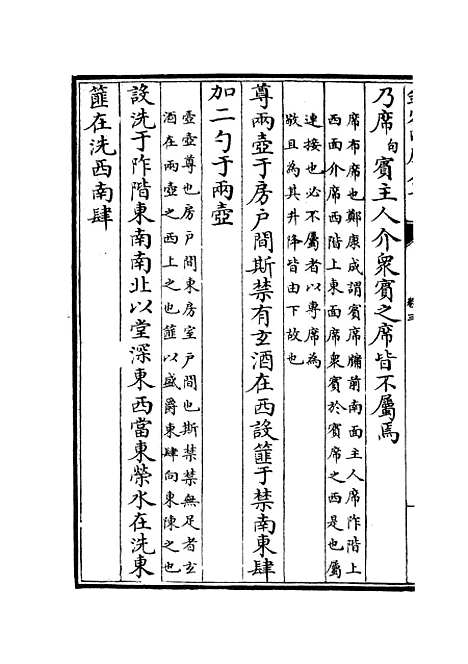 乃席句賓主人介衆賓之席皆不屬焉
席布席也鄭康成謂賓席牖前南面主人席阼階上
西面介席西階上東面席衆賓於賓席之西是也屬
連接也必不屬者以專席為
敬且為其升降皆由下故也
尊兩壺于房戶間斯禁有玄酒在西設篚于禁南東肆
加二勺于兩壺
壺壺尊也房戶間東房室戶間也斯禁禁無足者玄
酒在兩壺之西上之也篚以盛爵東肆向東陳之也
設洗于阼階東南南北以堂深東西當東榮水在洗東
篚在洗西南肆